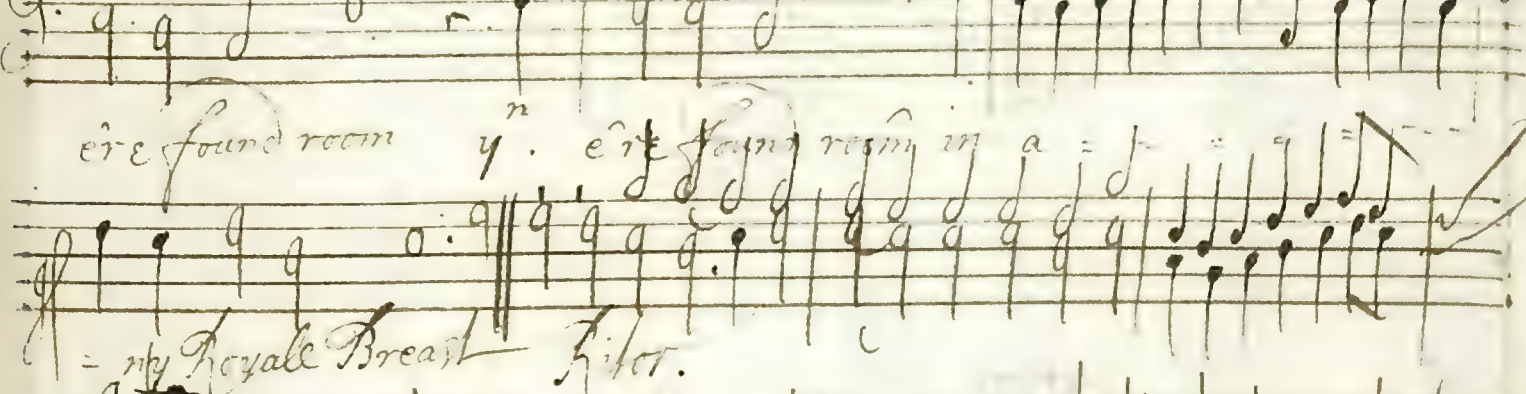 êre found room yⁿ. êre found room in a = = = =
= ny Royall Breast Ritor.